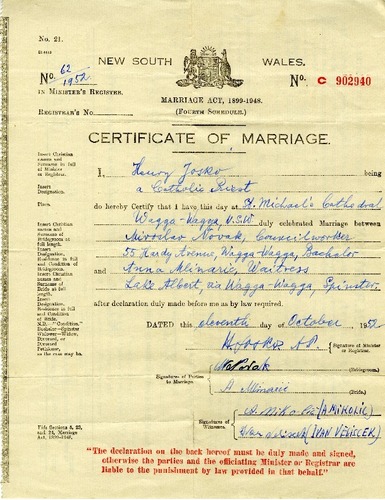 No. 21.
NEW SOUTH WALES.
No. 62/1952
No. C 902940
IN MINISTER'S REGISTER.
MARRIAGE ACT, 1899-1948.
REGISTRAR'S No.
(FOURTH SCHEDULE.)
CERTIFICATE OF MARRIAGE.
Insert Christian names and Surname in full of Minister or Registrar.
I, Henry Josko being
Insert Designation.
a Catholic Priest
Place.
do hereby Certify that I have this day at St. Michael's Cathedral
Insert Christian names and Surname of Bridegroom at full length.
Wagga-Wagga N.S.W. duly celebrated Marriage between
Miroslav Novak, Councilworker
Insert Designation, Residence in full and Condition of Bridegroom.
55 Hardy Avenue, Wagga-Wagga, Bachelor
Insert Christian names and Surname of Bride in full length.
and Anna Mlinaric, Waitress
Lake Albert via Wagga-Wagga, Spinster
Insert Designation, Residence in full and Condition of Bride.
after declaration duly made before me as by law required.
N.B.—"Condition." Bachelor-Spinster Widower-Widow, Divorced, or Divorced Petitioner as the case may be.
DATED this eleventh day of October 1952
(Signature of Minister or Registrar.
Signatures of Parties to Marriage.
A Mlinaric (Bride).
Signatures of Witnesses
A. Mikolic (A MIKOLIC)
(IVAN VESLECEK)
Vide Sections 8, 23, and 24, Marriage Act, 1899-1948.
"The declaration on the back hereof must be duly made and signed,
otherwise the parties and the officiating Minister or Registrar are
liable to the punishment by law provided in that behalf."